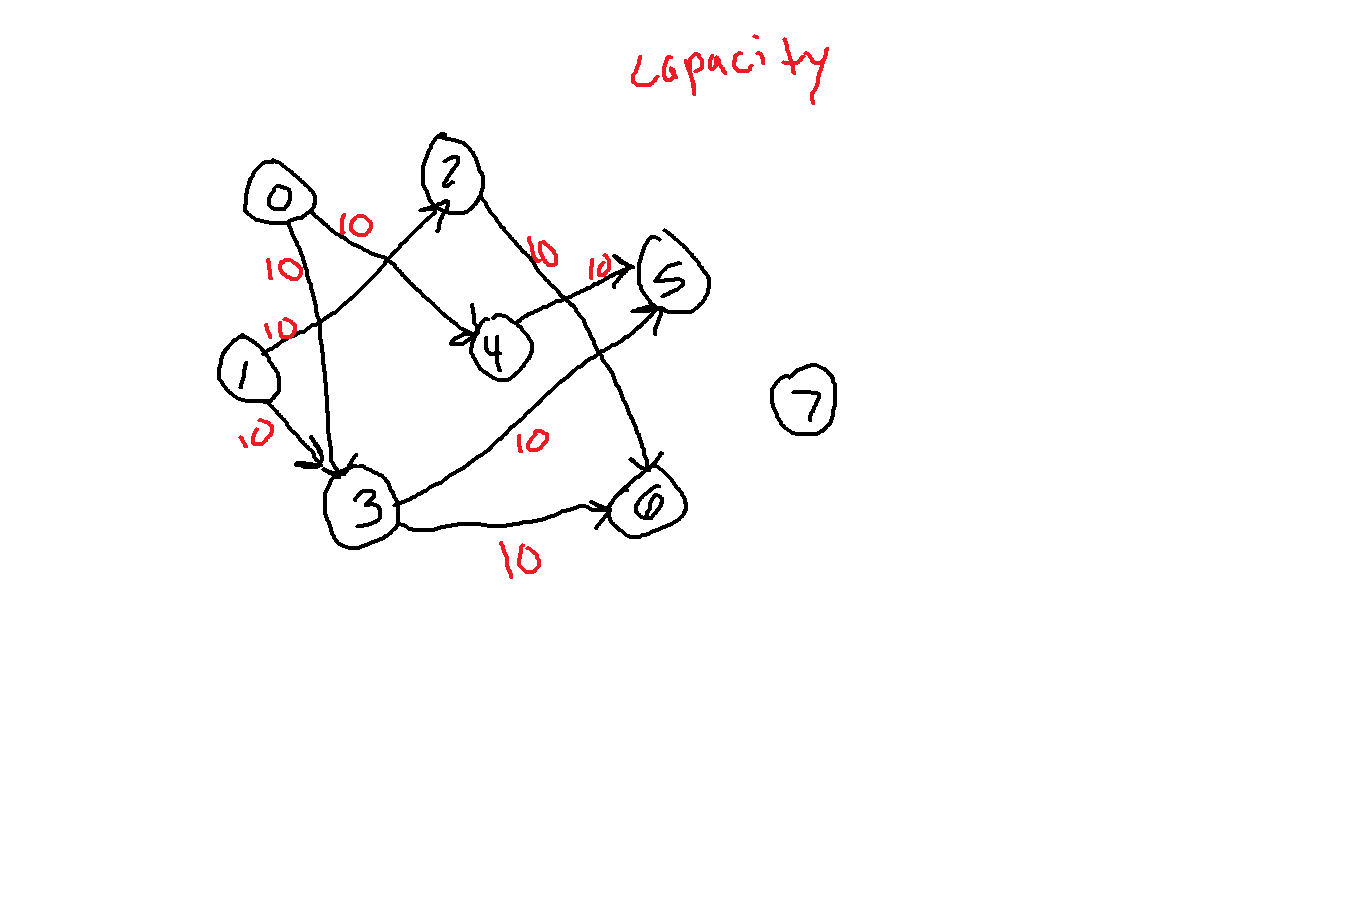 capacity
2
0
10
10
10
10
5
10
4
1
7
10
10
3
6
10